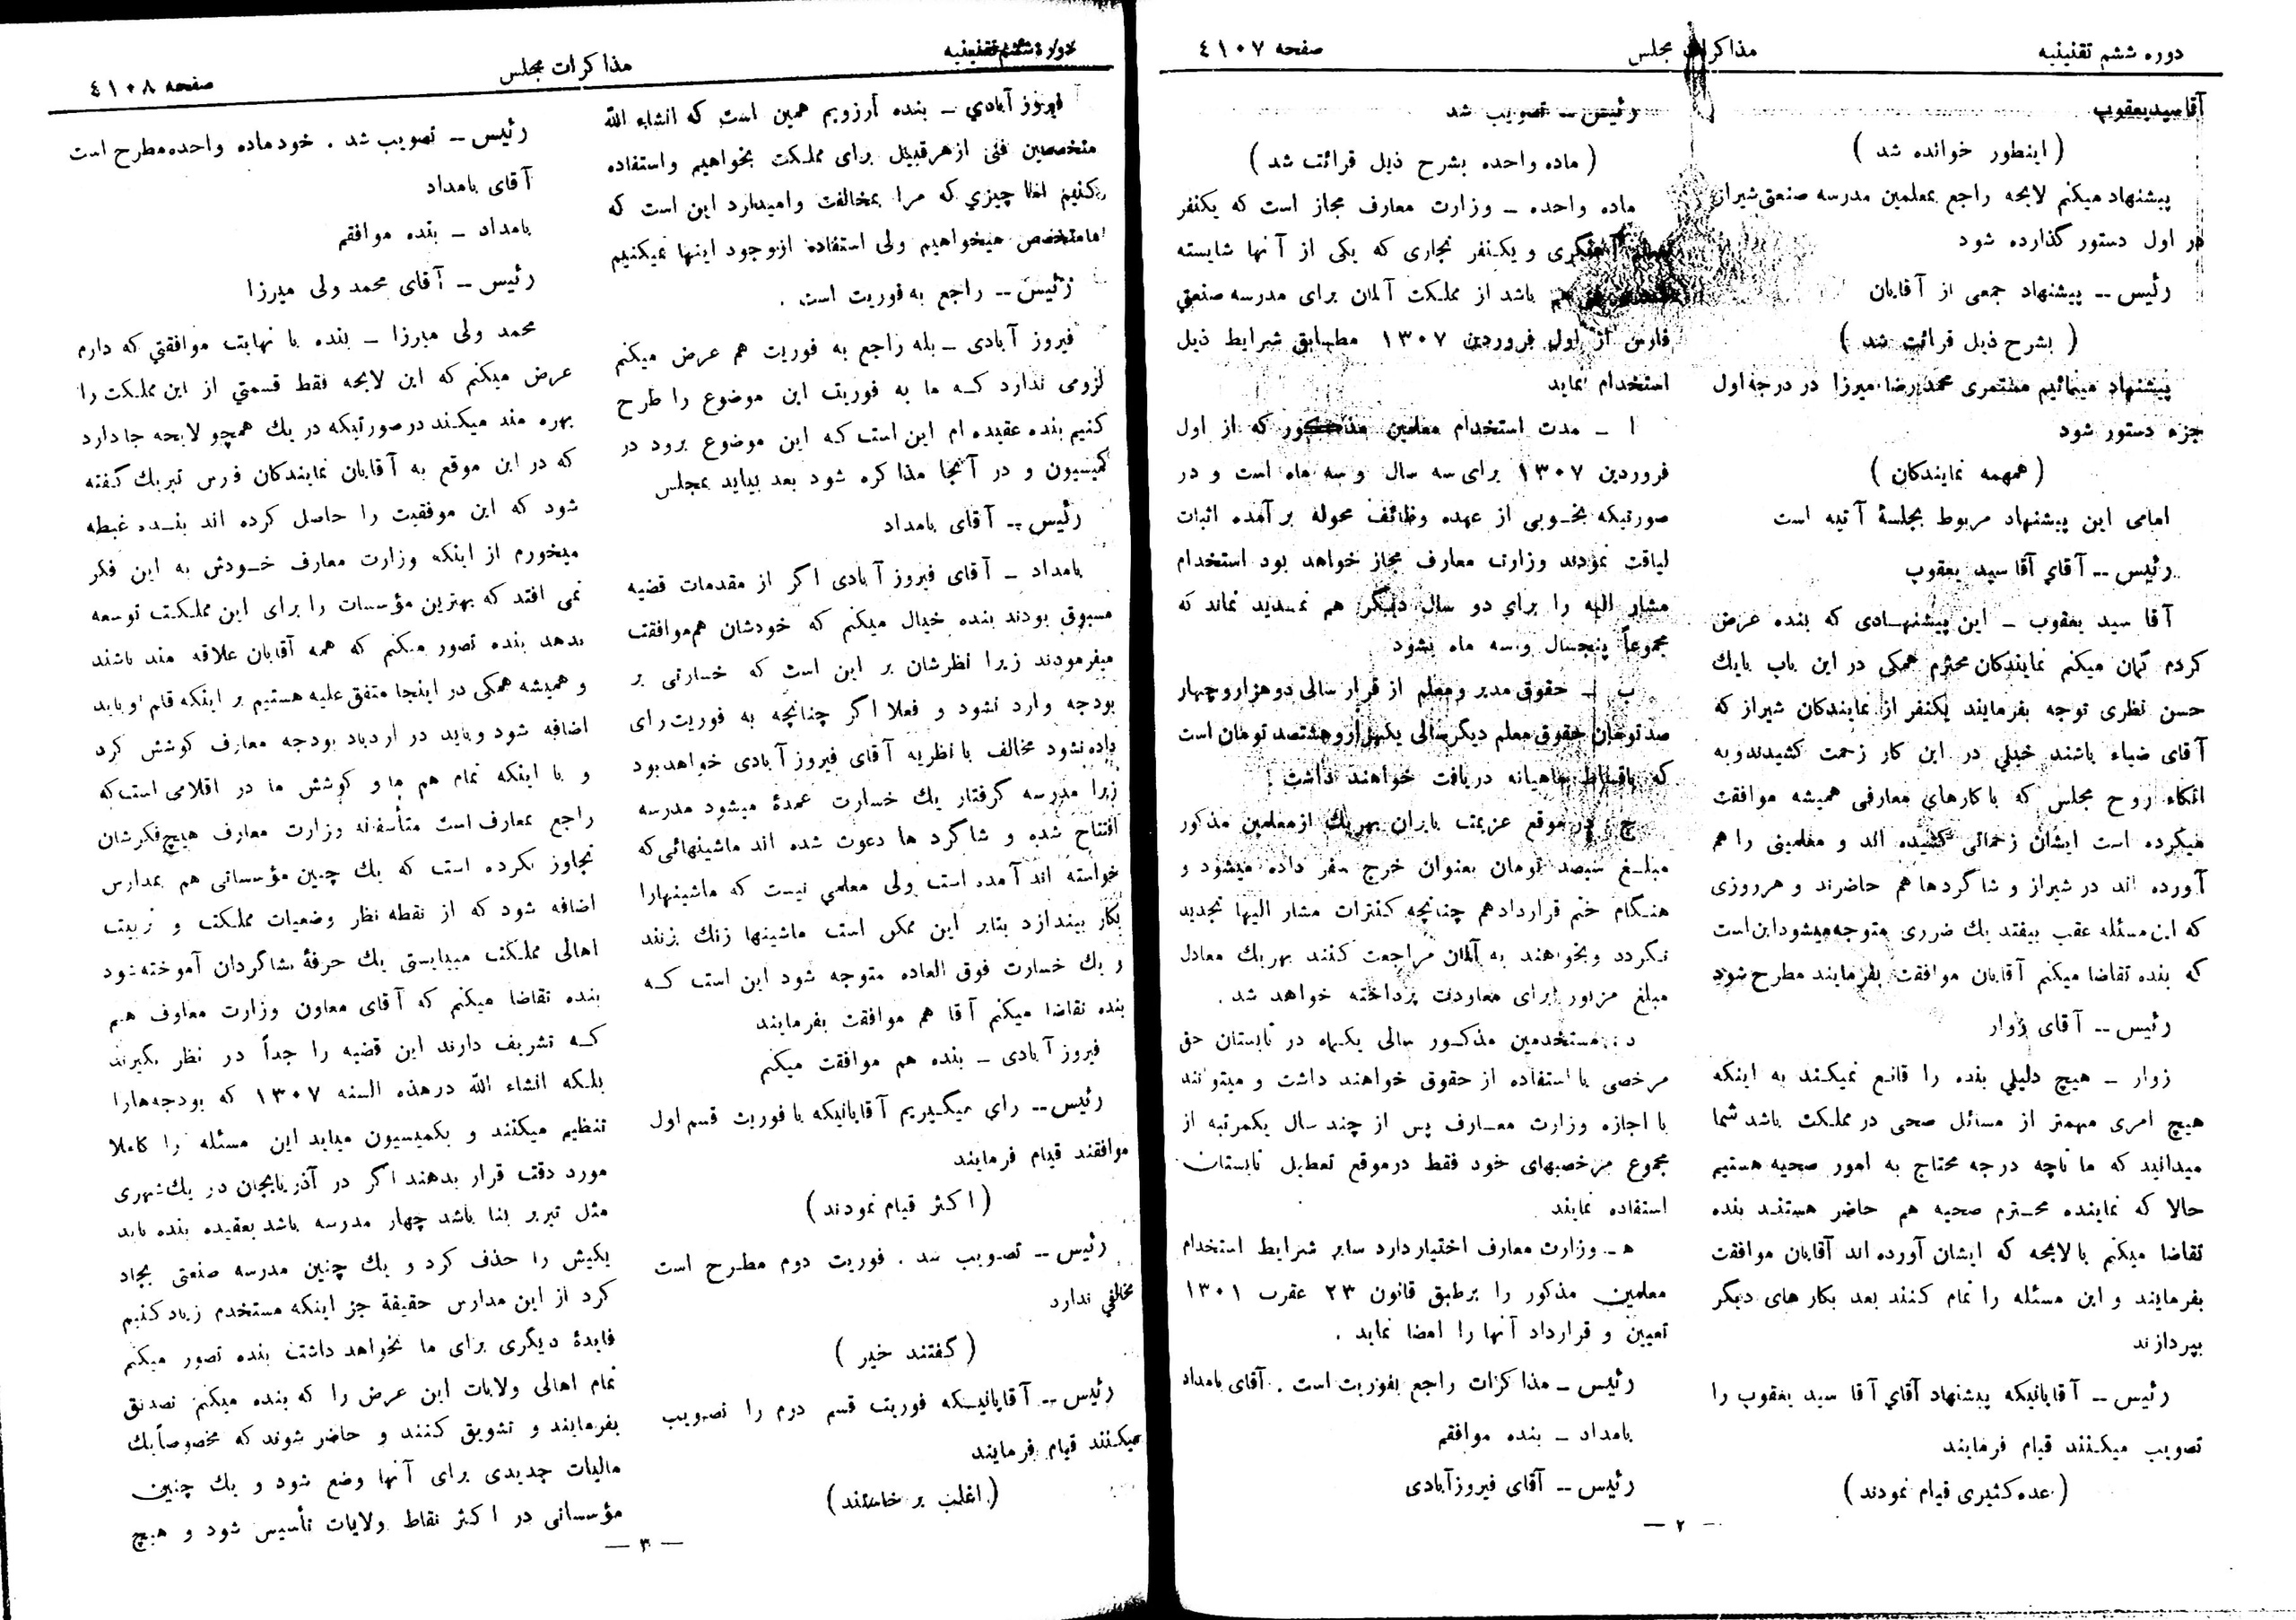 دوره ششم تقنینیه
مذاکرات مجلس
صفحه ٤١٠٧
آقا سید یعقوب
( اینطور خوانده شد )
پیشنهاد میکنم لایحه راجع بمعلمین مدرسه صنعتی شیراز
در اول دستور گذارده شود
رئیس ــ پیشنهاد جمعی از آقایان
( بشرح ذیل قرائت شد )
پیشنهاد مینمائیم مستمری محمدرضا میرزا در درجه اول
جزء دستور شود
( همهمه نمایندگان )
امامی این پیشنهاد مربوط بجلسهٔ آتیه است
رئیس ــ آقای آقا سید یعقوب
آقا سید یعقوب ــ این پیشنهادی که بنده عرض
کردم گمان میکنم نمایندگان محترم همگی در این باب بایك
حسن نظری توجه بفرمایند یکنفر از نمایندگان شیراز که
آقای ضیاء باشند خیلی در این کار زحمت کشیدند و به
اتکاء روح مجلس که با کارهای معارفی همیشه موافقت
میکرده است ایشان زحماتی کشیده اند و معلمینی را هم
آورده اند در شیراز و شاگردها هم حاضرند و هر روزی
که این مسئله عقب بیفتد یك ضرری متوجه میشود این است
که بنده تقاضا میکنم آقایان موافقت بفرمایند مطرح شود
رئیس ــ آقای زوار
زوار ــ هیچ دلیلی بنده را قانع نمیکند به اینکه
هیچ امری مهمتر از مسائل صحی در مملکت باشد شما
میدانید که ما تاچه درجه محتاج به امور صحیه هستیم
حالا که نماینده محترم صحیه هم حاضر هستند بنده
تقاضا میکنم با لایحه که ایشان آورده اند آقایان موافقت
بفرمایند و این مسئله را تمام کنند بعد بکار های دیگر
بپردازند
رئیس ــ آقایانیکه پیشنهاد آقای آقا سید یعقوب را
تصویب میکنند قیام فرمایند
( عده کثیری قیام نمودند )
رئیس ــ تصویب شد
( ماده واحده بشرح ذیل قرائت شد )
ماده واحده ــ وزارت معارف مجاز است که یکنفر
آهنگری و یکنفر نجاری که یکی از آنها شایسته
هم باشد از مملکت آلمان برای مدرسه صنعتی
فارس از اول فروردین ١٣٠٧ مطابق شرایط ذیل
استخدام نماید
ا ــ مدت استخدام معلمین مذکور که از اول
فروردین ١٣٠٧ برای سه سال و سه ماه است و در
صورتیکه بخوبی از عهده وظائف محوله برآمده اثبات
لیاقت نمودند وزارت معارف مجاز خواهد بود استخدام
مشار الیه را برای دو سال دیگر هم تمدید نماند که
مجموعاً پنجسال و سه ماه بشود
ب ــ حقوق مدیر و معلم از قرار سالی دو هزار و چهار
صد تومان حقوق معلم دیگر سالی یکهزار و هشتصد تومان است
که باقساط ماهیانه دریافت خواهند داشت
ج : در موقع عزیمت بایران بهر یك از معلمین مذکور
مبلغ سیصد تومان بعنوان خرج سفر داده میشود و
هنگام ختم قرارداد هم چنانچه کنترات مشار الیها تجدید
نگردد و بخواهند به آلمان مراجعت کنند بهریك معادل
مبلغ مزبور برای معاودت پرداخته خواهد شد .
د : مستخدمین مذکور سالی یکماه در تابستان حق
مرخصی با استفاده از حقوق خواهند داشت و میتوانند
با اجازه وزارت معارف پس از چند سال یکمرتبه از
مجموع مرخصیهای خود فقط درموقع تعطیل تابستان
استفاده نمایند
ه ــ وزارت معارف اختیار دارد سایر شرایط استخدام
معلمین مذکور را برطبق قانون ٢٣ عقرب ١٣٠١
تعیین و قرارداد آنها را امضا نماید .
رئیس ــ مذاکرات راجع بفوریت است . آقای بامداد
بامداد ــ بنده موافقم
رئیس ــ آقای فیروزآبادی
— ٢ —
دوره ششم تقنینیه
مذاکرات مجلس
صفحه ٤١٠٨
فیروز آبادي ــ بنده آرزویم همین است که انشاء الله
متخصصین فنی ازهرقبیل برای مملکت بخواهیم واستفاده
کنیم اما چیزی که مرا بمخالفت وامیدارد این است که
ما متخصص میخواهیم ولی استفاده ازوجود اینها نمیکنیم
رئیس ــ راجع به فوریت است .
فیروز آبادی ــ بله راجع به فوریت هم عرض میکنم
لزومی ندارد که ما به فوریت این موضوع را طرح
کنیم بنده عقیده ام این است که این موضوع برود در
کمیسیون و در آنجا مذاکره شود بعد بیاید بمجلس
رئیس ــ آقای بامداد
بامداد ــ آقای فیروز آبادی اگر از مقدمات قضیه
مسبوق بودند بنده خیال میکنم که خودشان هم موافقت
میفرمودند زیرا نظرشان بر این است که خسارتی بر
بودجه وارد نشود و فعلا اگر چنانچه به فوریت رای
داده نشود مخالف با نظریه آقای فیروز آبادی خواهد بود
زیرا مدرسه گرفتار یك خسارت عمدهٔ میشود مدرسه
افتتاح شده و شاگرد ها دعوت شده اند ماشینهائی که
خواسته اند آمده است ولی معلمی نیست که ماشینهارا
بکار بیندازد بنابر این ممکن است ماشینها زنك بزنند
و یك خسارت فوق العاده متوجه شود این است که
بنده تقاضا میکنم آقا هم موافقت بفرمایند
فیروز آبادی ــ بنده هم موافقت میکنم
رئیس ــ رای میگیریم آقایانیکه با فوریت قسم اول
موافقند قیام فرمایند
( اکثر قیام نمودند )
رئیس ــ تصویب شد . فوریت دوم مطرح است
مخالفی ندارد
( گفتند خیر )
رئیس ــ آقایانیکه فوریت قسم دوم را تصویب
میکنند قیام فرمایند
( اغلب بر خاستند )
رئیس ــ تصویب شد . خود ماده واحده مطرح است
آقای بامداد
بامداد ــ بنده موافقم
رئیس ــ آقای محمد ولی میرزا
محمد ولی میرزا ــ بنده با نهایت موافقتی که دارم
عرض میکنم که این لایحه فقط قسمتی از این مملکت را
بهره مند میکند در صورتیکه در یك همچو لایحه جا دارد
که در این موقع به آقایان نمایندگان فارس تبریك گفته
شود که این موفقیت را حاصل کرده اند بنده غبطه
میخورم از اینکه وزارت معارف خودش به این فکر
نمی افتد که بهترین مؤسسات را برای این مملکت توسعه
بدهد بنده تصور میکنم که همه آقایان علاقه مند باشند
و همیشه همگی در اینجا متفق علیه هستیم بر اینکه قلم او باید
اضافه شود و باید در ازدیاد بودجه معارف کوشش کرد
و با اینکه تمام هم ما و کوشش ما در اقلامی است که
راجع بمعارف است متأسفانه وزارت معارف هیچ فکرشان
تجاوز نکرده است که یك چنین مؤسساتی هم بمدارس
اضافه شود که از نقطه نظر وضعیات مملکت و تربیت
اهالی مملکت میبایستی یك حرفهٔ بشاگردان آموخته شود
بنده تقاضا میکنم که آقای معاون وزارت معارف هم
که تشریف دارند این قضیه را جداً در نظر بگیرند
بلکه انشاء الله درهذه السنه ١٣٠٧ که بودجه‌ها را
تنظیم میکنند و بکمیسیون میاید این مسئله را کاملا
مورد دقت قرار بدهند اگر در آذربایجان در یك شهری
مثل تبریز بنا باشد چهار مدرسه باشد بعقیده بنده باید
یکیش را حذف کرد و یك چنین مدرسه صنعتی ایجاد
کرد از این مدارس حقیقة جز اینکه مستخدم زیاد کنیم
فایدهٔ دیگری برای ما نخواهد داشت بنده تصور میکنم
تمام اهالی ولایات این عرض را که بنده میکنم تصدیق
بفرمایند و تشویق کنند و حاضر شوند که مخصوصاً یك
مالیات جدیدی برای آنها وضع شود و یك چنین
مؤسساتی در اکثر نقاط ولایات تأسیس شود و هیچ
— ٣ —